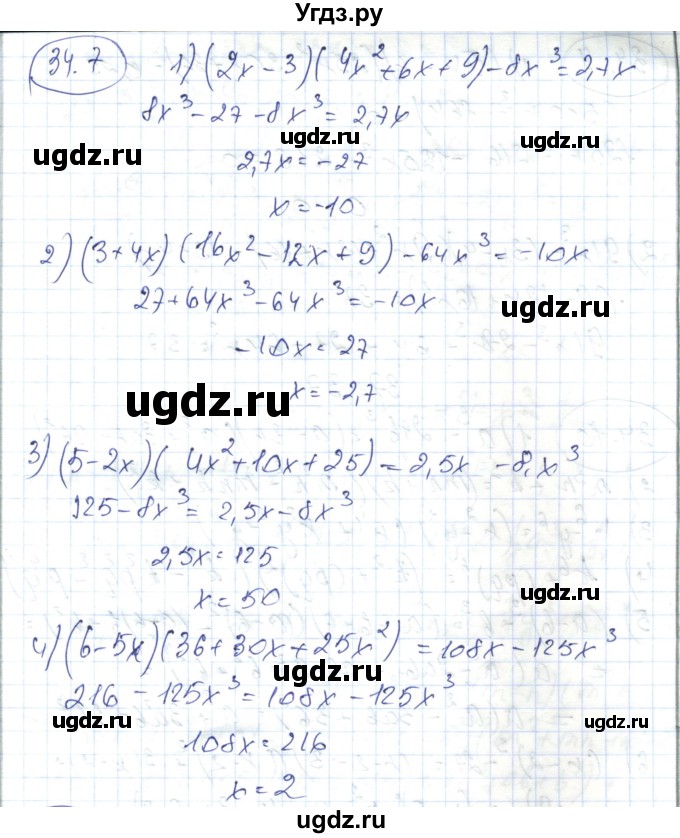 Угдз.ру
34.7 1) (2x - 3)(4x² + 6x + 9) - 8x³ = 2,7x
8x³ - 27 - 8x³ = 2,7x
ugdz.ru
ugdz.ru
ugdz.ru
2,7x = -27
x = -10
2) (3 + 4x)(16x² - 12x + 9) - 64x³ = -10x
27 + 64x³ - 64x³ = -10x
ugdz.ru
-10x = 27
x = -2,7
ugdz.ru
3) (5 - 2x)(4x² + 10x + 25) = 2,5x - 8x³
125 - 8x³ = 2,5x - 8x³
ugdz.ru
2,5x = 125
x = 50
ugdz.ru
4) (6 - 5x)(36 + 30x + 25x²) = 108x - 125x³
216 - 125x³ = 108x - 125x³
ugdz.ru
ugdz.ru
108x = 216
x = 2
ugdz.ru